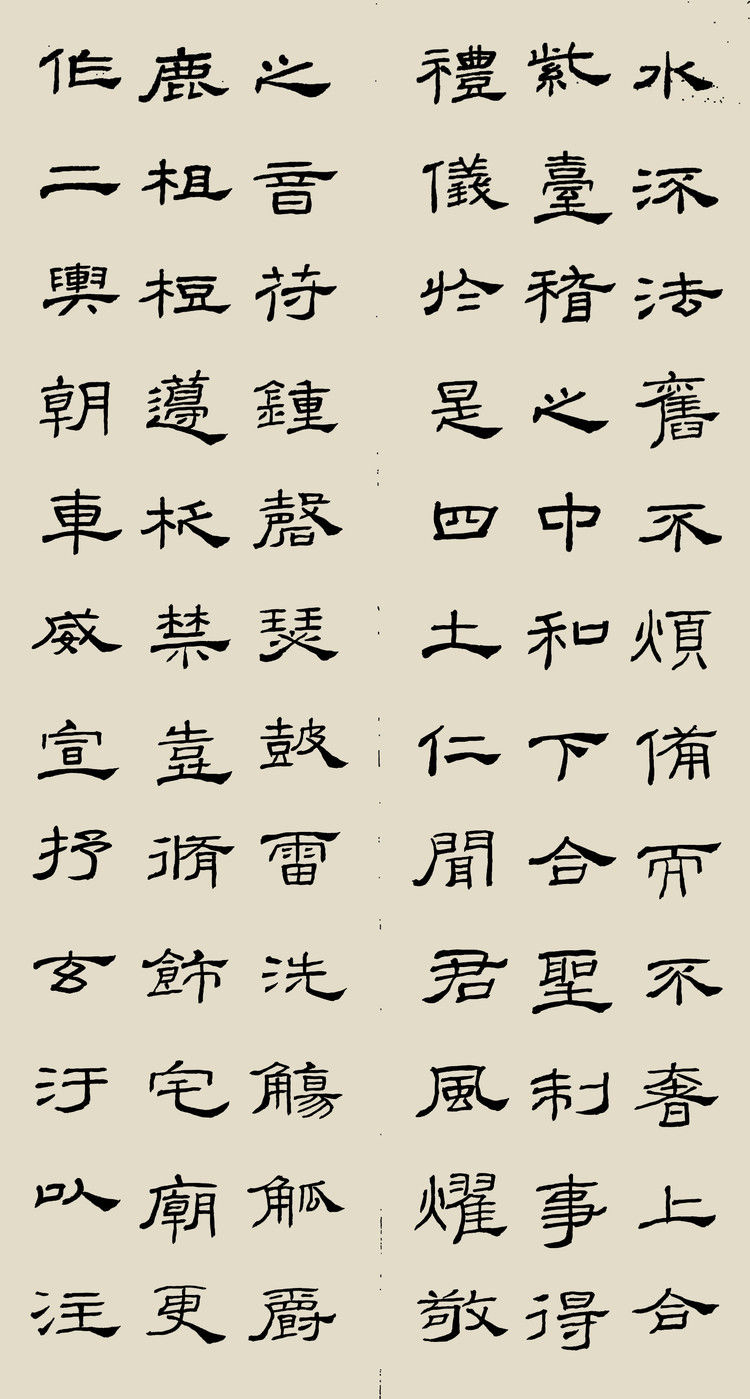 水流法舊不煩備而不奢上合
紫臺稽之中和下合聖制事得
禮儀於是四土仁聞君風燿敬
之音符鍾磬瑟鼓雷洗觴觚爵
鹿柤梪籩柉禁壺脩飾宅廟更
作二輿朝車威宣抒玄汙以注